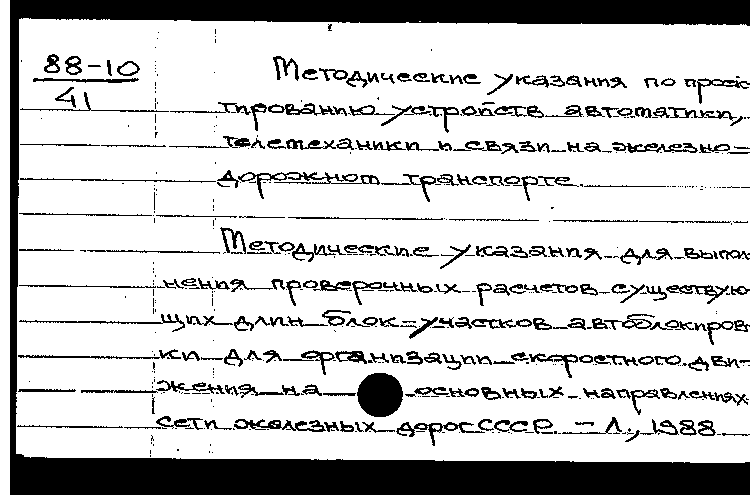 88-10
41
Методические указания по проек
тированию устройств автоматики,
телемеханики и связи на железно-
дорожном транспорте.
Методические указания для выпол
нения проверочных расчетов существую
щих длин блок-участков автоблокиров
ки для организации скоростного дви-
жения на основных направлениях
сети железных дорог СССР. – Л., 1988.